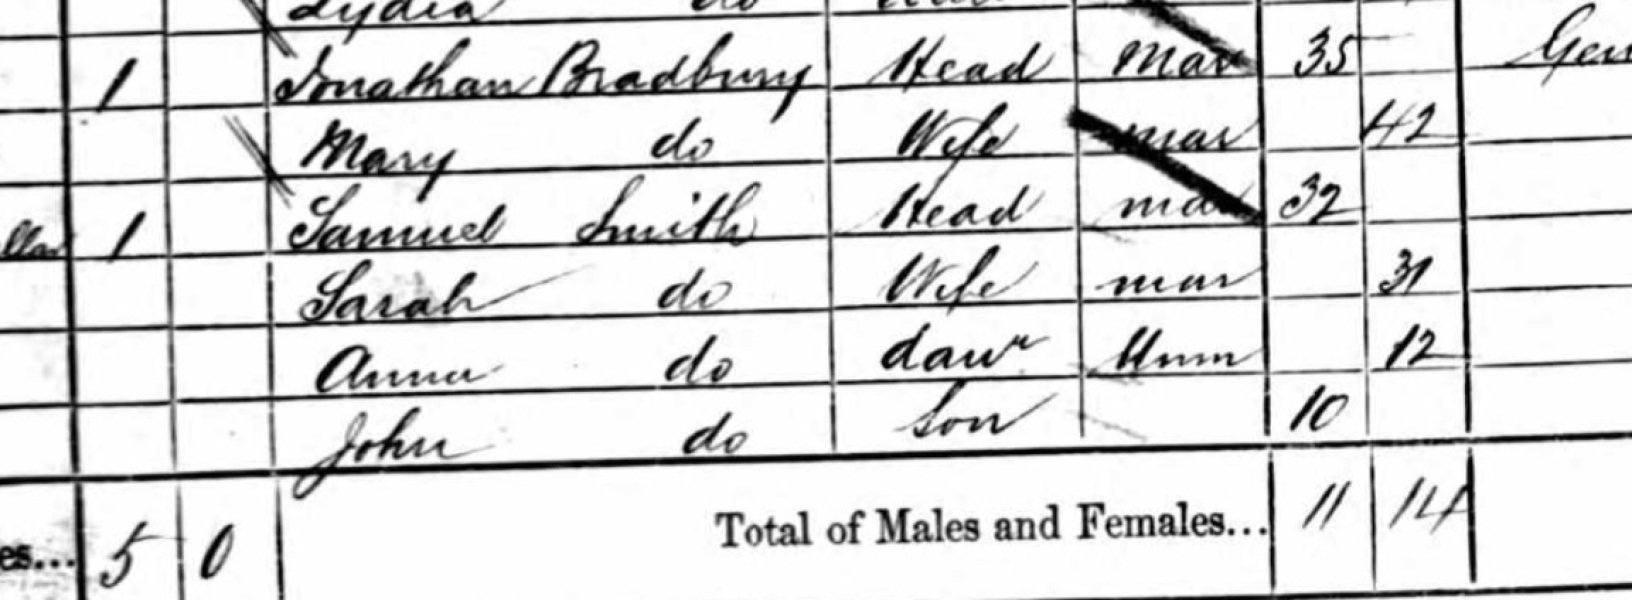 Lydia do
1 Jonathan Bradbury Head Mar 35 Gen
Mary do Wife mar 42
1 Samuel Smith Head mar 32
Sarah do Wife mar 31
Anna do dawr Unm 12
John do Son 10
es... 5 0 Total of Males and Females... 11 14